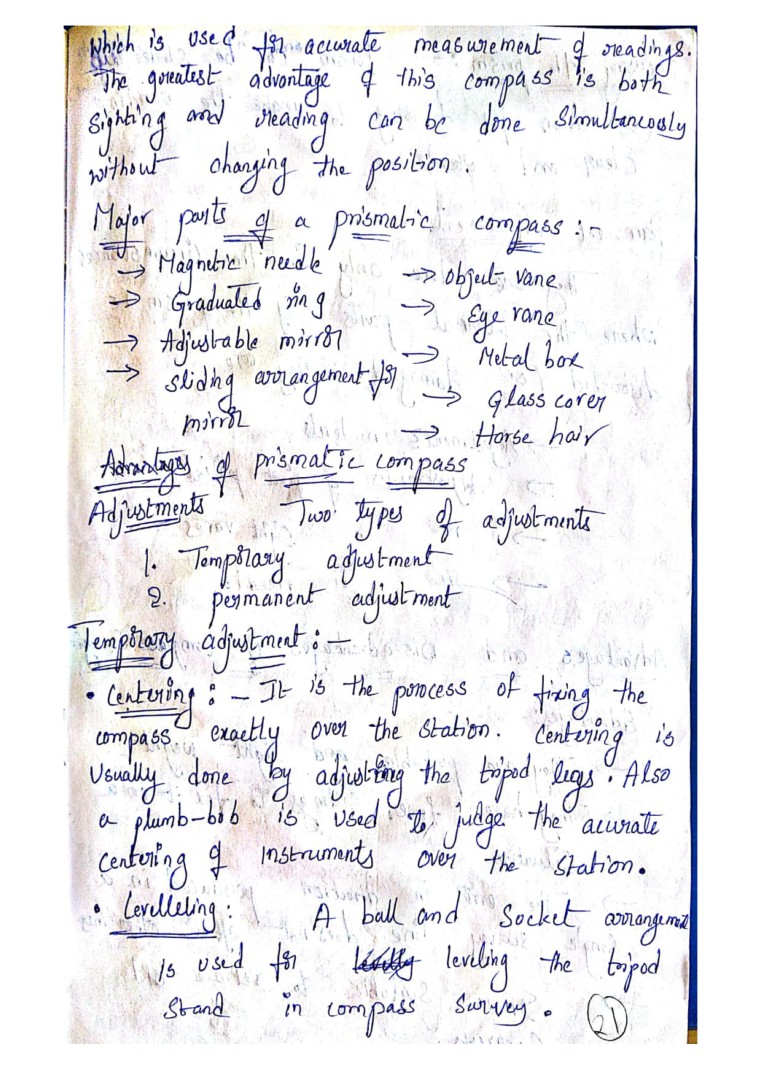 which is used for accurate measurement of readings.
The greatest advantage of this compass is both
sighting and reading can be done simultaneously
without changing the position.
Major parts of a prismatic compass :-
→ Magnetic needle → object vane
→ Graduated ring → Eye vane
→ Adjustable mirror → Metal box
→ sliding arrangement for → Glass cover
mirror → Horse hair
Advantages of prismatic compass
Adjustments Two types of adjustments
1. Temporary adjustment
2. permanent adjustment
Temporary adjustment :-
• Centering : - It is the process of fixing the
compass exactly over the station. Centering is
usually done by adjusting the tripod legs. Also
a plumb-bob is used to judge the acurate
centering of instruments over the station.
• Levelleling : A ball and socket arrangement
is used for leveling the tripod
stand in compass survey.
21